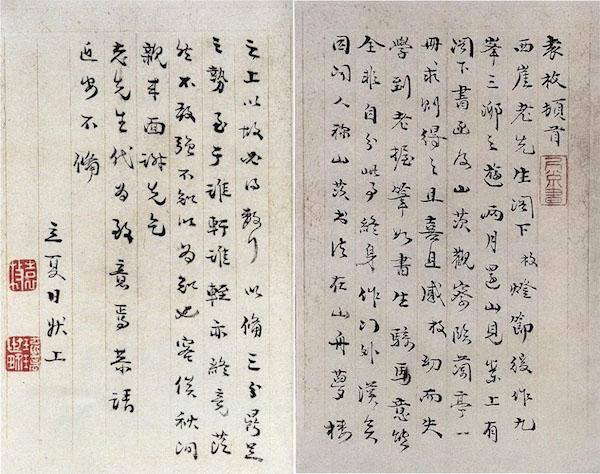 袁枚頓首
西崖老先生閣下枚燈節後作九
峯三泖之遊兩月還山見案上有
閣下書函及山茨觀察臨蘭亭一
冊求則得之且喜且感枚幼而失
學到老握筆如書生騎馬意態
全非自分此事終身作門外漢矣
因聞人稱山茨書法在山舟夢樓
之上以故必得數行以備三分鼎足
之勢至于誰軒誰輊亦終竟茫
然不敢強不知以為知也容俟秋間
親來面謝先乞
老先生代為致意焉恭請
近安不備
立夏日狀上